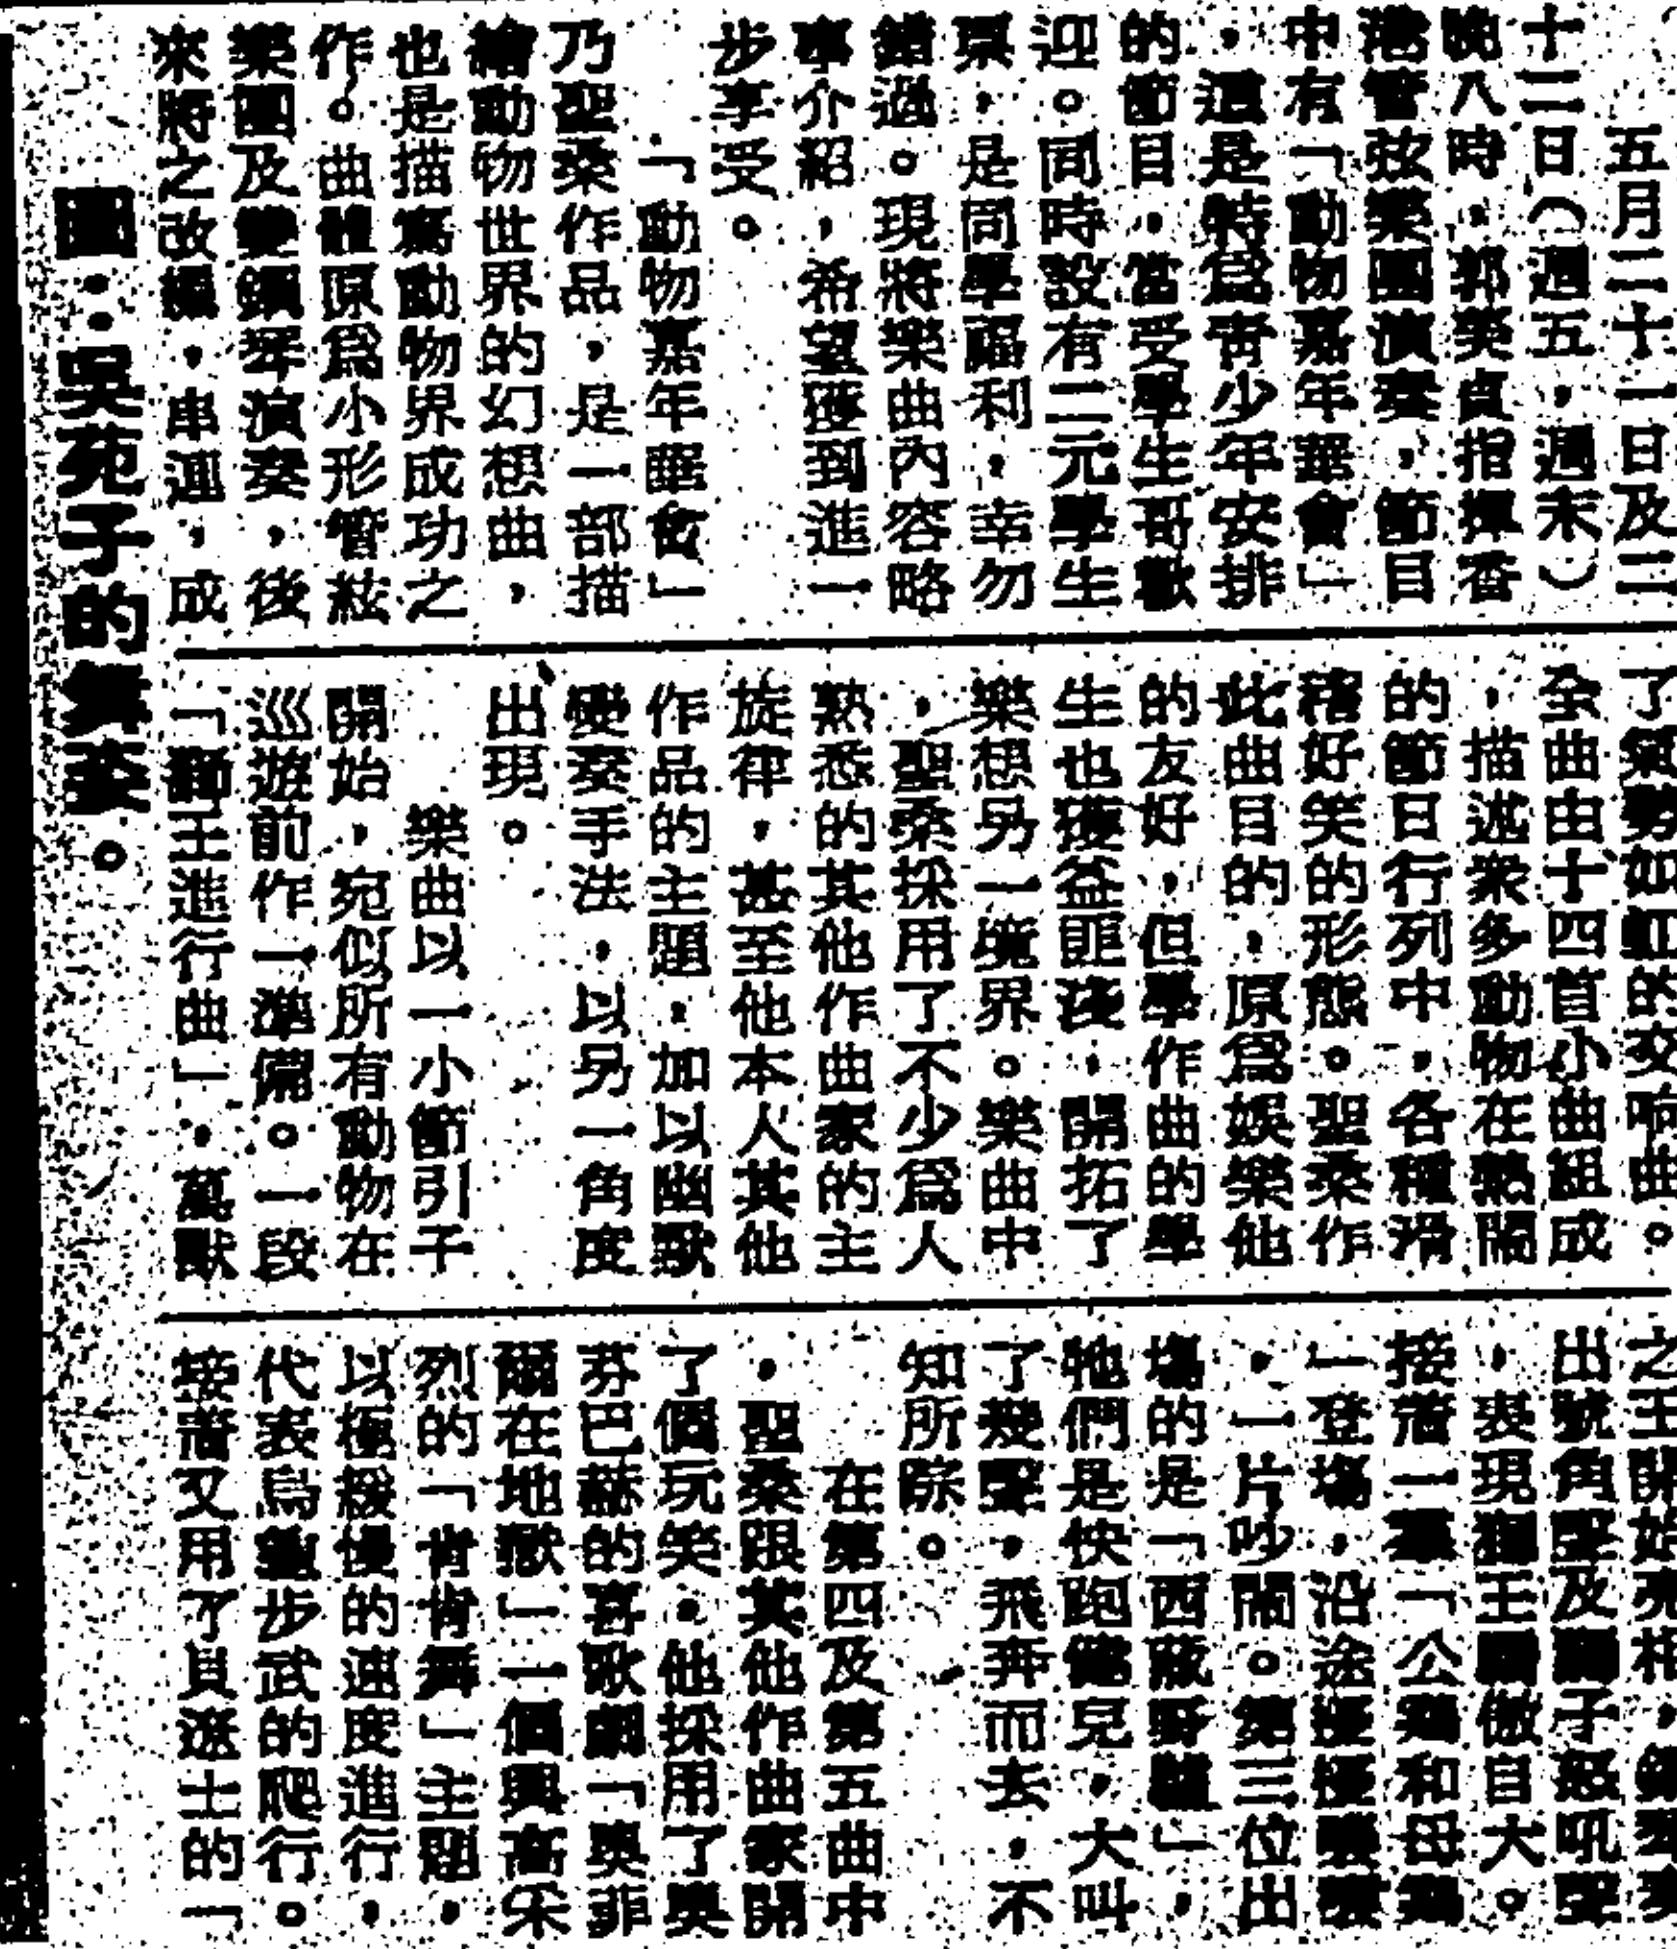 五月二十一日及二
十二日（週五，週末）
晚八時，郭美貞指揮香
港管弦樂團演奏，節目
中有「動物嘉年華會」
，這是特爲靑少年安排
的節目，當受學生哥歡
迎。同時設有二元學生
票，是同學福利，幸勿
錯過。現將樂曲內容略
事介紹，希望獲到進一
步享受。
「動物嘉年華會」
乃聖桑作品，是一部描
繪動物世界的幻想曲，
也是描寫動物界成功之
作。曲體原爲小形管絃
樂團及雙鋼琴演奏，後
來將之改編，串連，成
了氣勢如虹的交响曲。
全曲由十四首小曲組成
，描述衆多動物在熱鬧
的節日行列中，各種滑
稽好笑的形態。聖桑作
此曲目的，原爲娛樂他
的友好，但學作曲的學
生也獲益匪淺，開拓了
樂想另一境界。樂曲中
，聖桑採用了不少爲人
熟悉的其他作曲家的主
旋律，甚至他本人其他
作品的主題，加以幽默
變奏手法，以另一角度
出現。
樂曲以一小節引子
開始，宛似所有動物在
巡遊前作一準備。一段
「獅王進行曲」，萬獸
之王開始亮相，鋼琴奏
出號角聲及獅子怒吼聲
，表現獅王驕傲自大。
接着一幕「公鷄和母鷄
」登場，沿途擾擾嚷嚷
，一片吵鬧。第三位出
場的是「西藏野驢」，
牠們是快跑健兒，大叫
了幾聲，飛奔而去，不
知所踪。
在第四及第五曲中
，聖桑跟其他作曲家開
了個玩笑。他採用了奧
芬巴蘇的喜歌劇「奧菲
爾在地獄」一個興高采
烈的「肯肯舞」主題，
以極緩慢的速度進行，
代表烏龜步武的爬行。
接着又用了貝遼士的「
圖：吳苑子的舞姿。